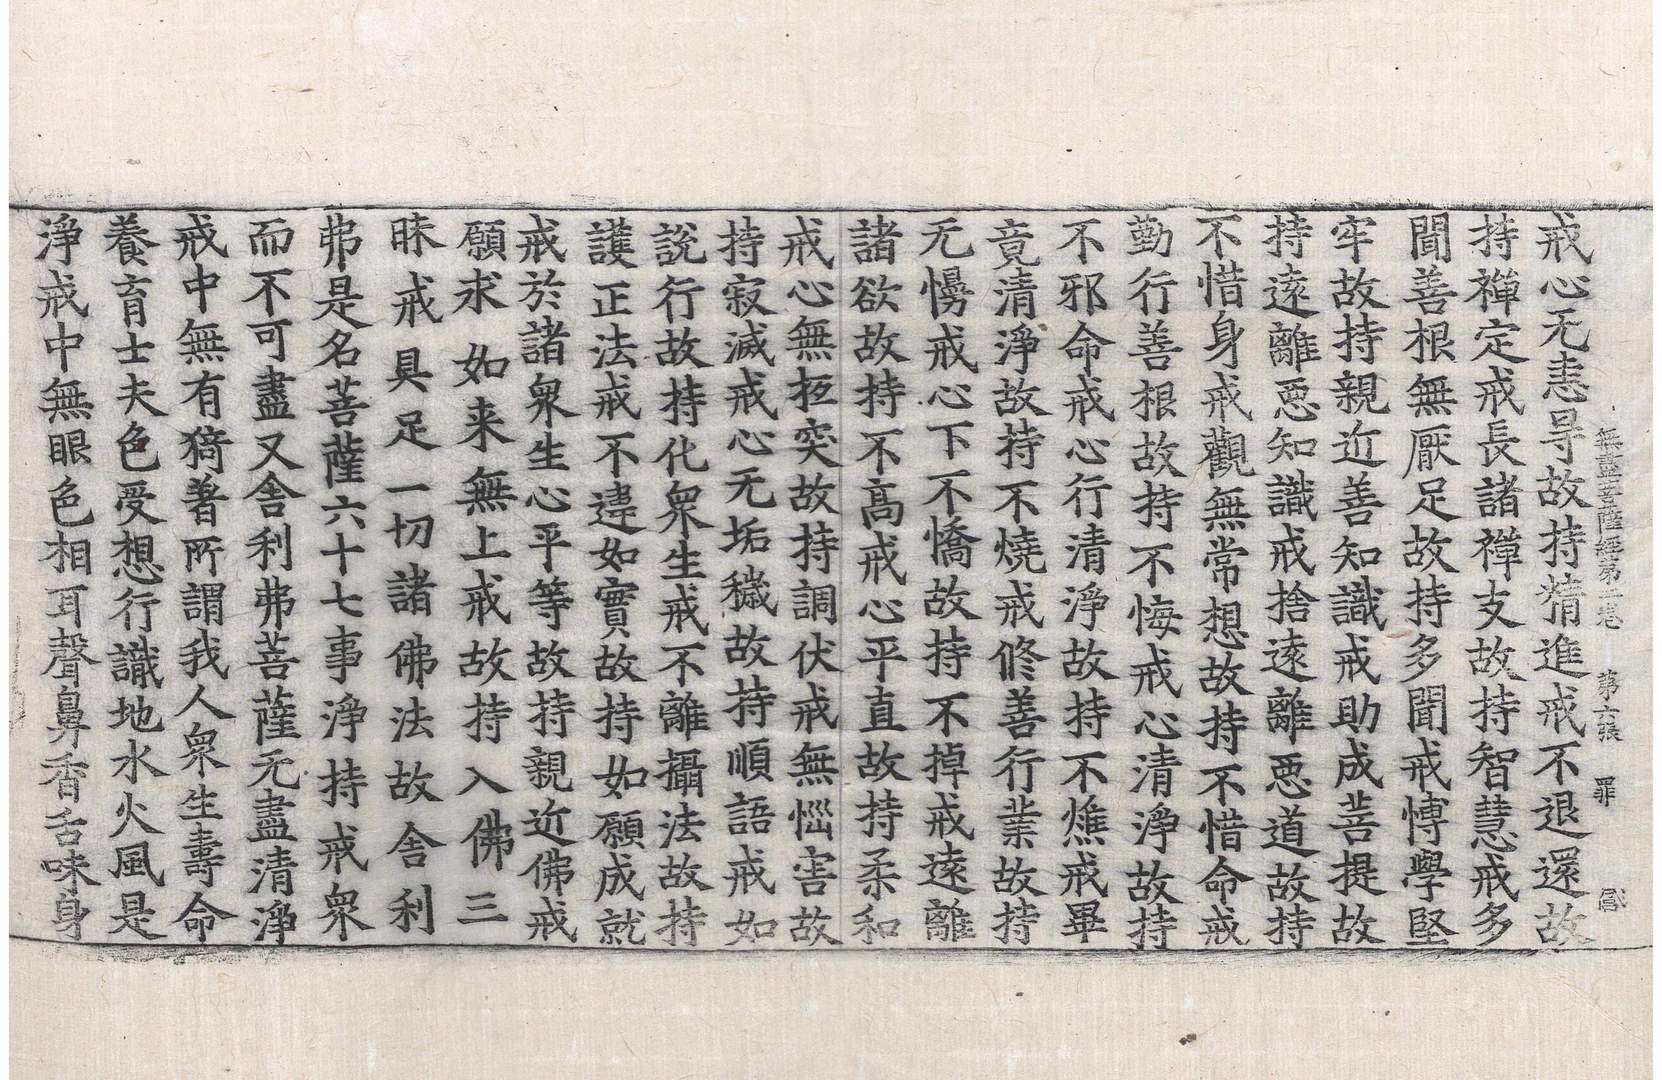 無盡意菩薩經第二卷　第六張　罪
戒心无恚导故持精進戒不退還故
持禪定戒長諸禪支故持智慧戒多
聞善根無厭足故持多聞戒愽學堅
牢故持親近善知識戒助成菩提故
持遠離惡知識戒捨遠離惡道故持
不惜身戒觀無常想故持不惜命戒
勤行善根故持不悔戒心清淨故持
不邪命戒心行清淨故持不燋戒畢
竟清淨故持不燒戒修善行業故持
无慢戒心下不憍故持不掉戒遠離
諸欲故持不高戒心平直故持柔和
戒心無抂突故持調伏戒無惱害故
持寂滅戒心无垢穢故持順語戒如
說行故持化衆生戒不離攝法故持
護正法戒不違如實故持如願成就
戒於諸衆生心平等故持親近佛戒
願求如来無上戒故持入佛三
昧戒具足一切諸佛法故舎利
弗是名菩薩六十七事淨持戒衆
而不可盡又舎利弗菩薩无盡清淨
戒中無有猗著所謂我人衆生壽命
養育士夫色受想行識地水火風是
淨戒中無眼色相耳聲鼻香舌味身